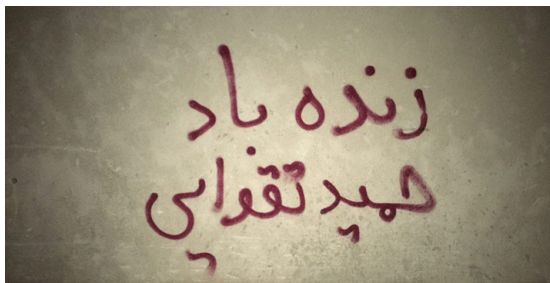 زنده باد
حمید تقوایی